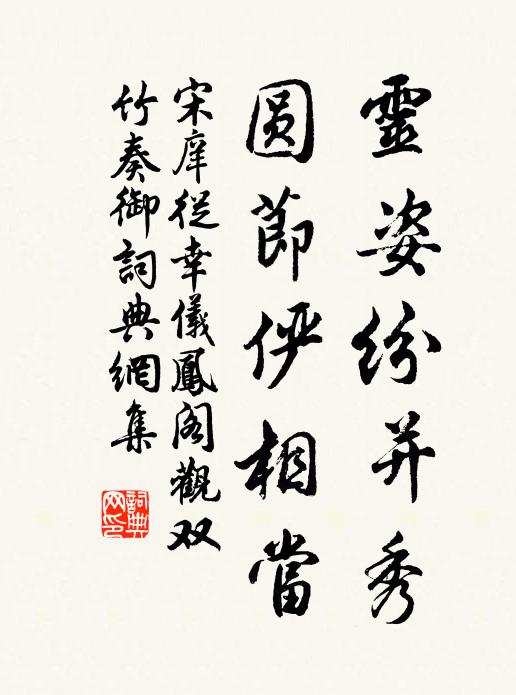 靈姿紛并秀
圓節俨相當
宋庠從幸儀鳳阁觀双
竹奏御詞典網集
詞典网印